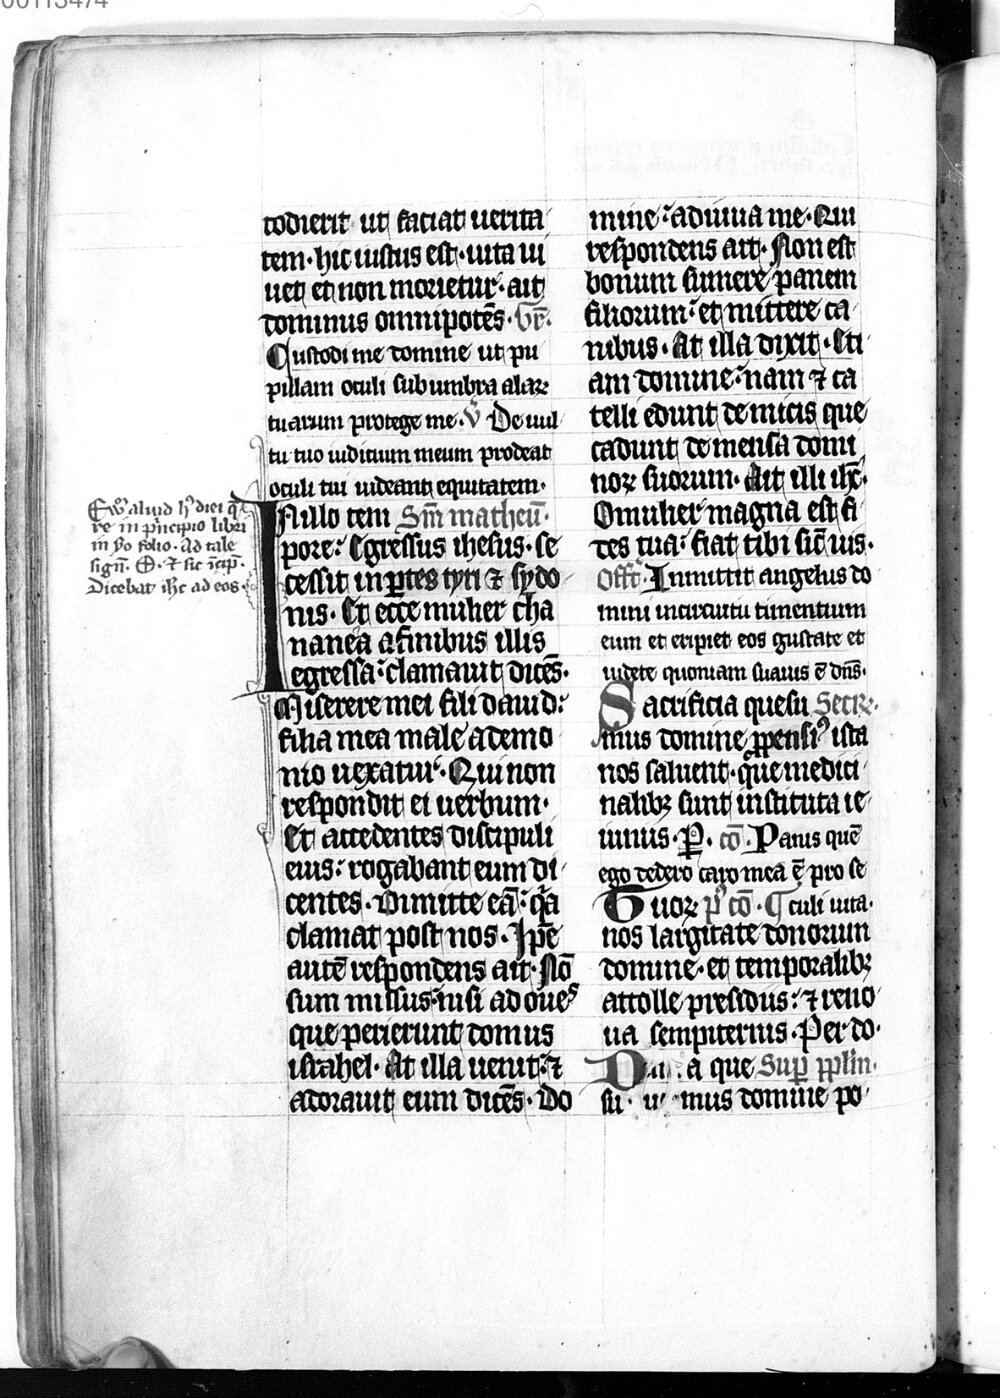 00113474
todierit ut faciat uerita
tem · hic iustus est · uita ui
uet et non morietur · ait
dominus omnipotēs · Gr̄.
Custodi me domine ut pu
pillam oculi sub umbra alaꝝ
tuarum protege me · V̄ De uul
tu tuo iudicium meum prodeat
oculi tui uideant equitatem ·
In illo tem Sm̄ matheū ·
pore : Egressus ihesus · se
cessit in ꝑtes tyri ⁊ sydo
nis · Et ecce mulier cha
nanea a finibus illis
egressa : clamauit dicēs ·
Miserere mei fili dauid :
filia mea male a demo
nio uexatur · Qui non
respondit ei uerbum ·
Et accedentes discipuli
eius : rogabant eum di
centes · Dimitte eā : q̄a
clamat post nos · Ip̄e
autē respondens ait · Nō
sum missus nisi ad oues
que perierunt domus
israhel · At illa uenit : ⁊
adorauit eum dicēs · Do
Ewͫ aliud hꝰ diei q̄
re in pͥncipio libri
in pͦo folio · Ad tale
signū · ⁊ sic īcip̄ ·
Dicebat ihc ad eos ·
mine : adiuua me · Qui
respondens ait · Non est
bonum sumere panem
filiorum : et mittere ca
nibus · At illa dixit · Eti
am domine : nam ⁊ ca
telli edunt de micis que
cadunt de mensa domi
noꝝ suorum · Ait illi ihc̄ ·
O mulier magna est fi
des tua : fiat tibi sic̄ uis ·
Offr̄ · Inmittit angelus do
mini in circuitu timentium
eum et eripiet eos gustate et
uidete quoniam suauis ē dn̄s ·
Sacrificia quesu Secrꝝ ·
mus domine ꝓpensiꝰ ista
nos saluent · que medici
nalibꝫ sunt instituta ie
iuniis · P · cō · Panis quē
ego dedero caro mea ē pro se
Tuoꝝ pͦ cō · culi uita ·
nos largitate donorum
domine · et temporalibꝫ
attolle presidiis : ⁊ reno
ua sempiternis · Per do ·
a que Sup̄ pplm̄ ·
su mus domine po